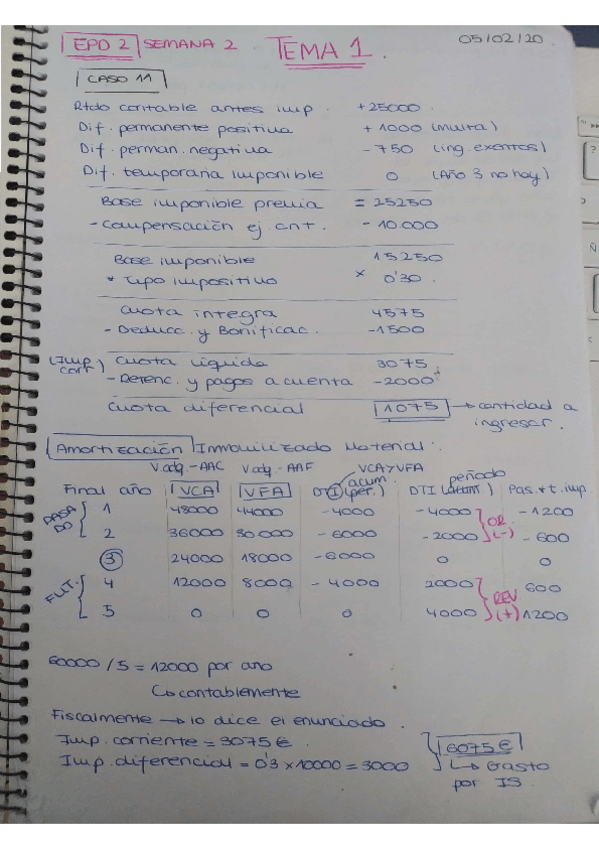 EPD 2 SEMANA 2 TEMA 1. 05/02/20
CASO 11
Rtdo contable antes imp. +25000
Dif. permanente positiva +1000 (multa)
Dif. perman. negativa -750 (ing. exentos)
Dif. temporaria imponible 0 (Año 3 no hay)
Base imponible previa = 25250
- Compensación ej. ant. -10.000
Base imponible 15250
* Tipo impositivo x 0'30
Cuota íntegra 4575
- Deducc. y Bonificac. -1500
(Imp. corr) Cuota líquida 3075
- Retenc. y pagos a cuenta -2000
Cuota diferencial 1075 → cantidad a ingresar.
Amortización Inmovilizado Material.
V adq. - AAC V adq. - AAF VCA > VFA
Final año VCA VFA DTI acum. (per.) DTI periodo Pas. x t. imp
PASADO 1 48000 44000 -4000 -4000 OR (-) -1200
2 36000 30000 -6000 -2000 -600
3 24000 18000 -6000 0 0
FUT. 4 12000 8000 -4000 2000 REV (+) 600
5 0 0 0 4000 1200
60000 / 5 = 12000 por año
↳ contablemente
Fiscalmente → lo dice el enunciado.
Imp. corriente = 3075€ 6075€
Imp. diferencial = 0'3 x 10000 = 3000 ↳ Gasto por IS